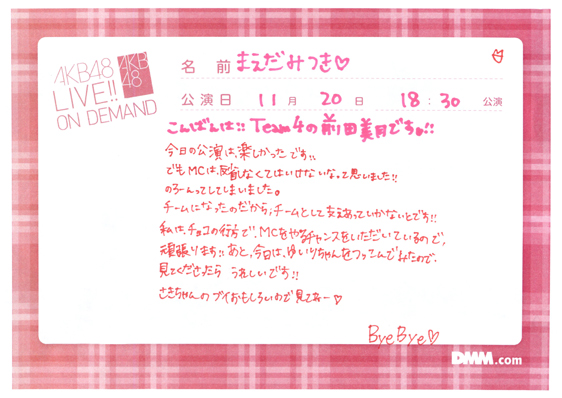 AKB48
LIVE!!
ON DEMAND
AKB
48
名 前 まえだみつき♡
公演日 11月 20日 18:30 公演
こんばんは!! Team4の前田美月です!!
今日の公演は、楽しかったです!!
でもMCは、反省しなくてはいけないなって思いました!!
のろーんってしてしまいました。
チームになったのだから、チームとして支えあっていかないとです!!
私は、チョコの行方で、MCをやるチャンスをいただいているので、
頑張ります!! あと、今日は、ゆいりちゃんをつってんでみたので、
見てくださったら うれしいです!!
さきちゃんの ブイおもしろいので見てねー♡
ByeBye♡
DMM.com